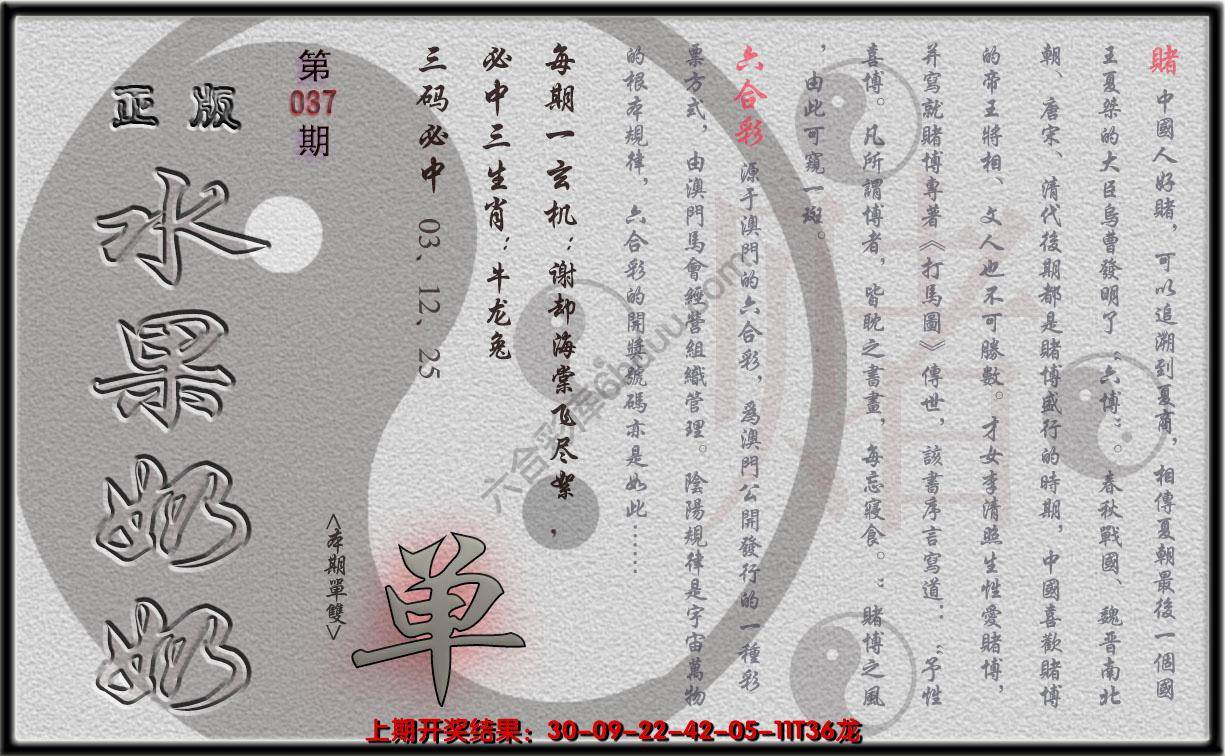 賭 中國人好賭，可以追溯到夏商，相傳夏朝最後一個國
王夏桀的大臣烏曹發明了“六博”。春秋戰國、魏晉南北
朝、唐宋、清代後期都是賭博盛行的時期，中國喜歡賭博
的帝王將相、文人也不可勝數。才女李清照生性愛賭博，
并寫就賭博專著《打馬圖》傳世，該書序言寫道：“予性
喜博。凡所謂博者，皆耽之書畫，每忘寢食。”賭博之風
，由此可窺一斑。
六合彩 源于澳門的六合彩，爲澳門公開發行的一種彩
票方式，由澳門馬會經營組織管理。陰陽規律是宇宙萬物
的根本規律，六合彩的開獎號碼亦是如此……
每期一玄机：谢却海棠飞尽絮，
必中三生肖：牛龙兔
三码必中 03、12、25
第
037
期
正版
水果奶奶
<本期單雙>
单
賭
六合彩库6bduu.com
上期开奖结果：30-09-22-42-05-11T36龙